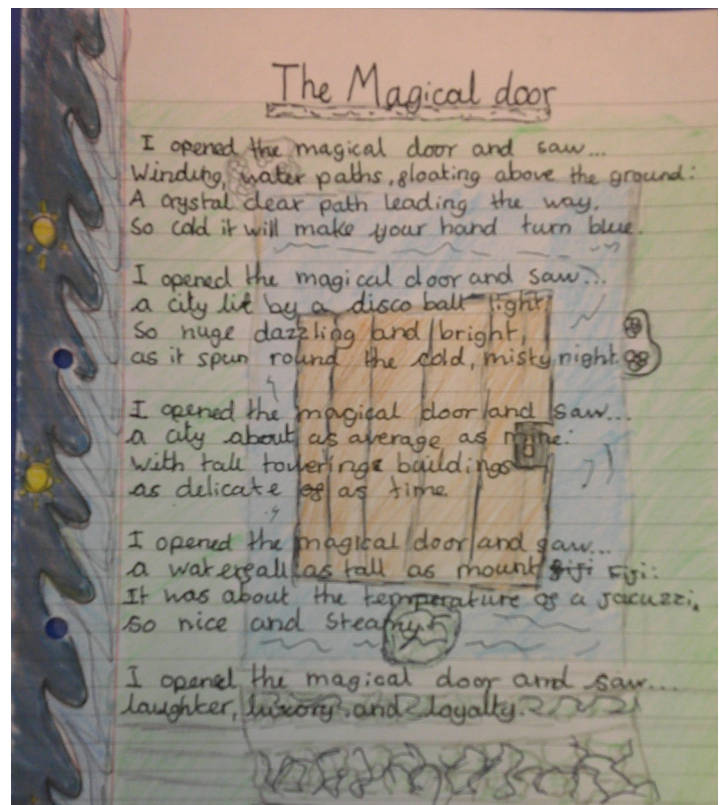 The Magical door
I opened the magical door and saw...
Winding, water paths, floating above the ground:
A crystal clear path leading the way,
So cold it will make your hand turn blue.
I opened the magical door and saw...
a city lit by a disco ball light
So huge dazzling and bright,
as it spun round the cold, misty night
I opened the magical door and saw...
a city about as average as mine:
With tall towering buildings
as delicate as time.
I opened the magical door and saw...
a waterfall as tall as mount Fiji:
It was about the temperature of a jacuzzi,
So nice and steamy.
I opened the magical door and saw...
laughter, luxory and loyalty.